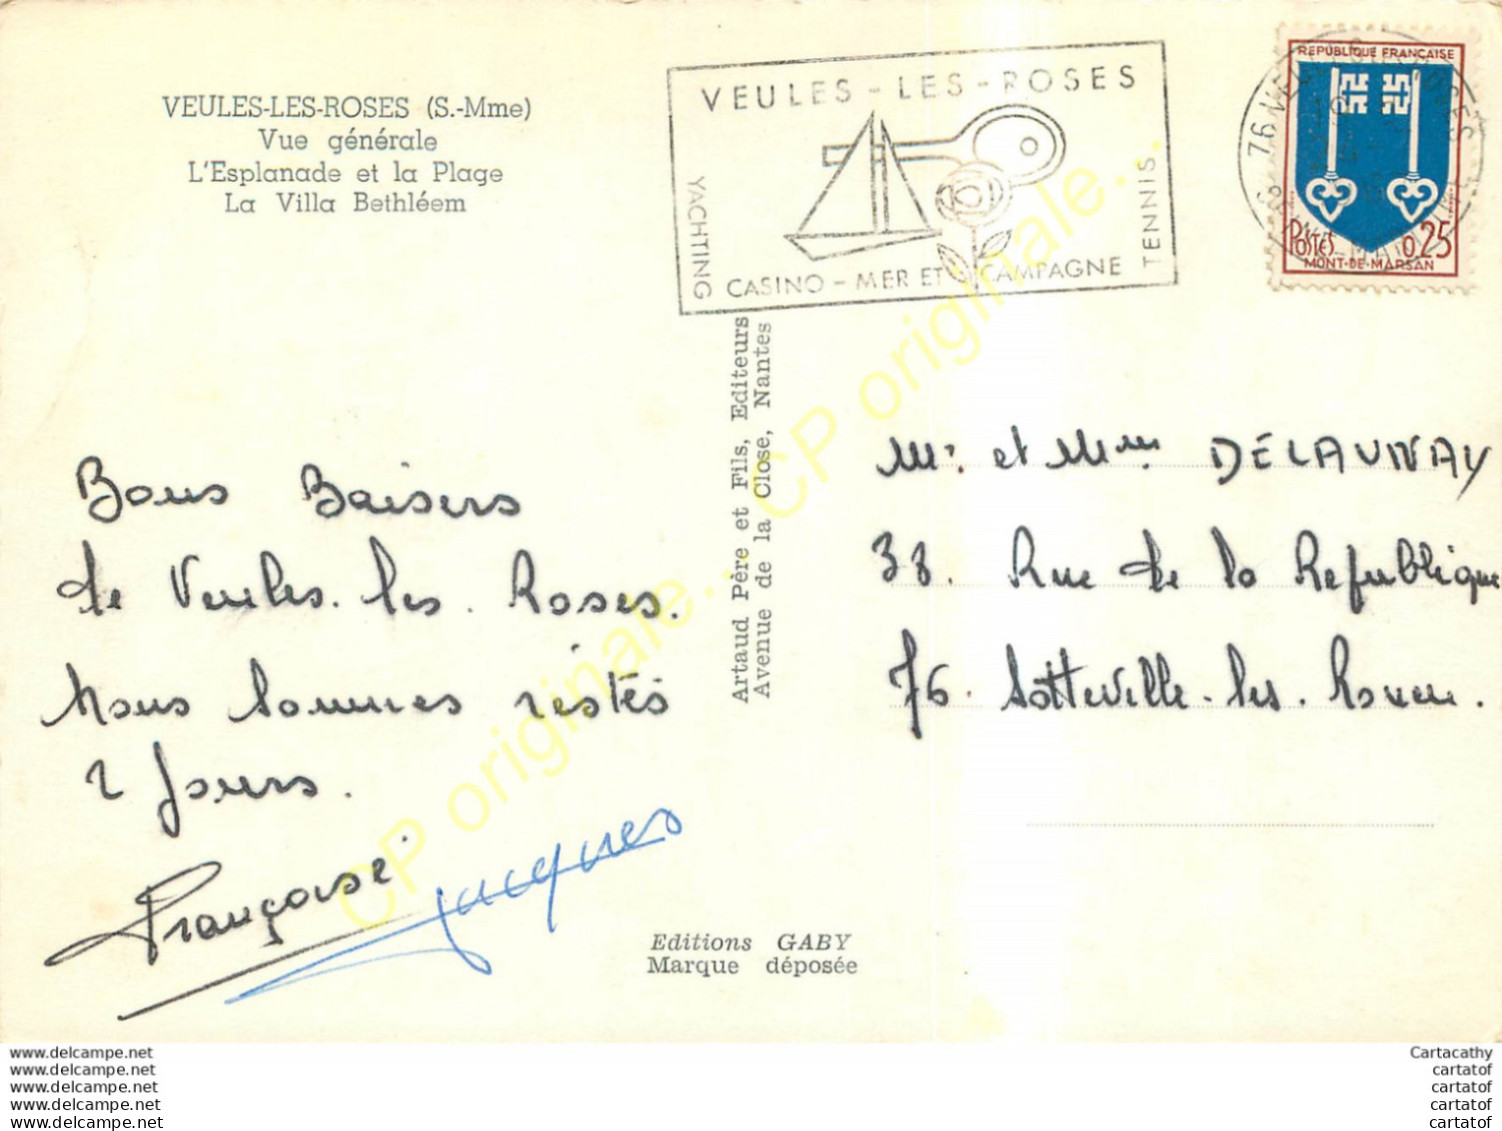 VEULES-LES-ROSES (S.-Mme)
Vue générale
L'Esplanade et la Plage
La Villa Bethléem
VEULES-LES-ROSES
YACHTING
CASINO - MER ET CAMPAGNE
TENNIS
REPUBLIQUE FRANCAISE
POSTES 0,25
MONT-DE-MARSAN
Bons Baisers
de Veules. les. Roses.
Nous sommes restés
2 jours.
Françoise
Jacques
Artaud Père et Fils, Editeurs
Avenue de la Close, Nantes
Mr. et Mme DELAUNAY
38. Rue de la Republique
76. Sotteville-les. Rouen.
Editions GABY
Marque déposée
CP originale... CP originale...
www.delcampe.net
www.delcampe.net
www.delcampe.net
www.delcampe.net
www.delcampe.net
Cartacathy
cartatof
cartatof
cartatof
cartatof